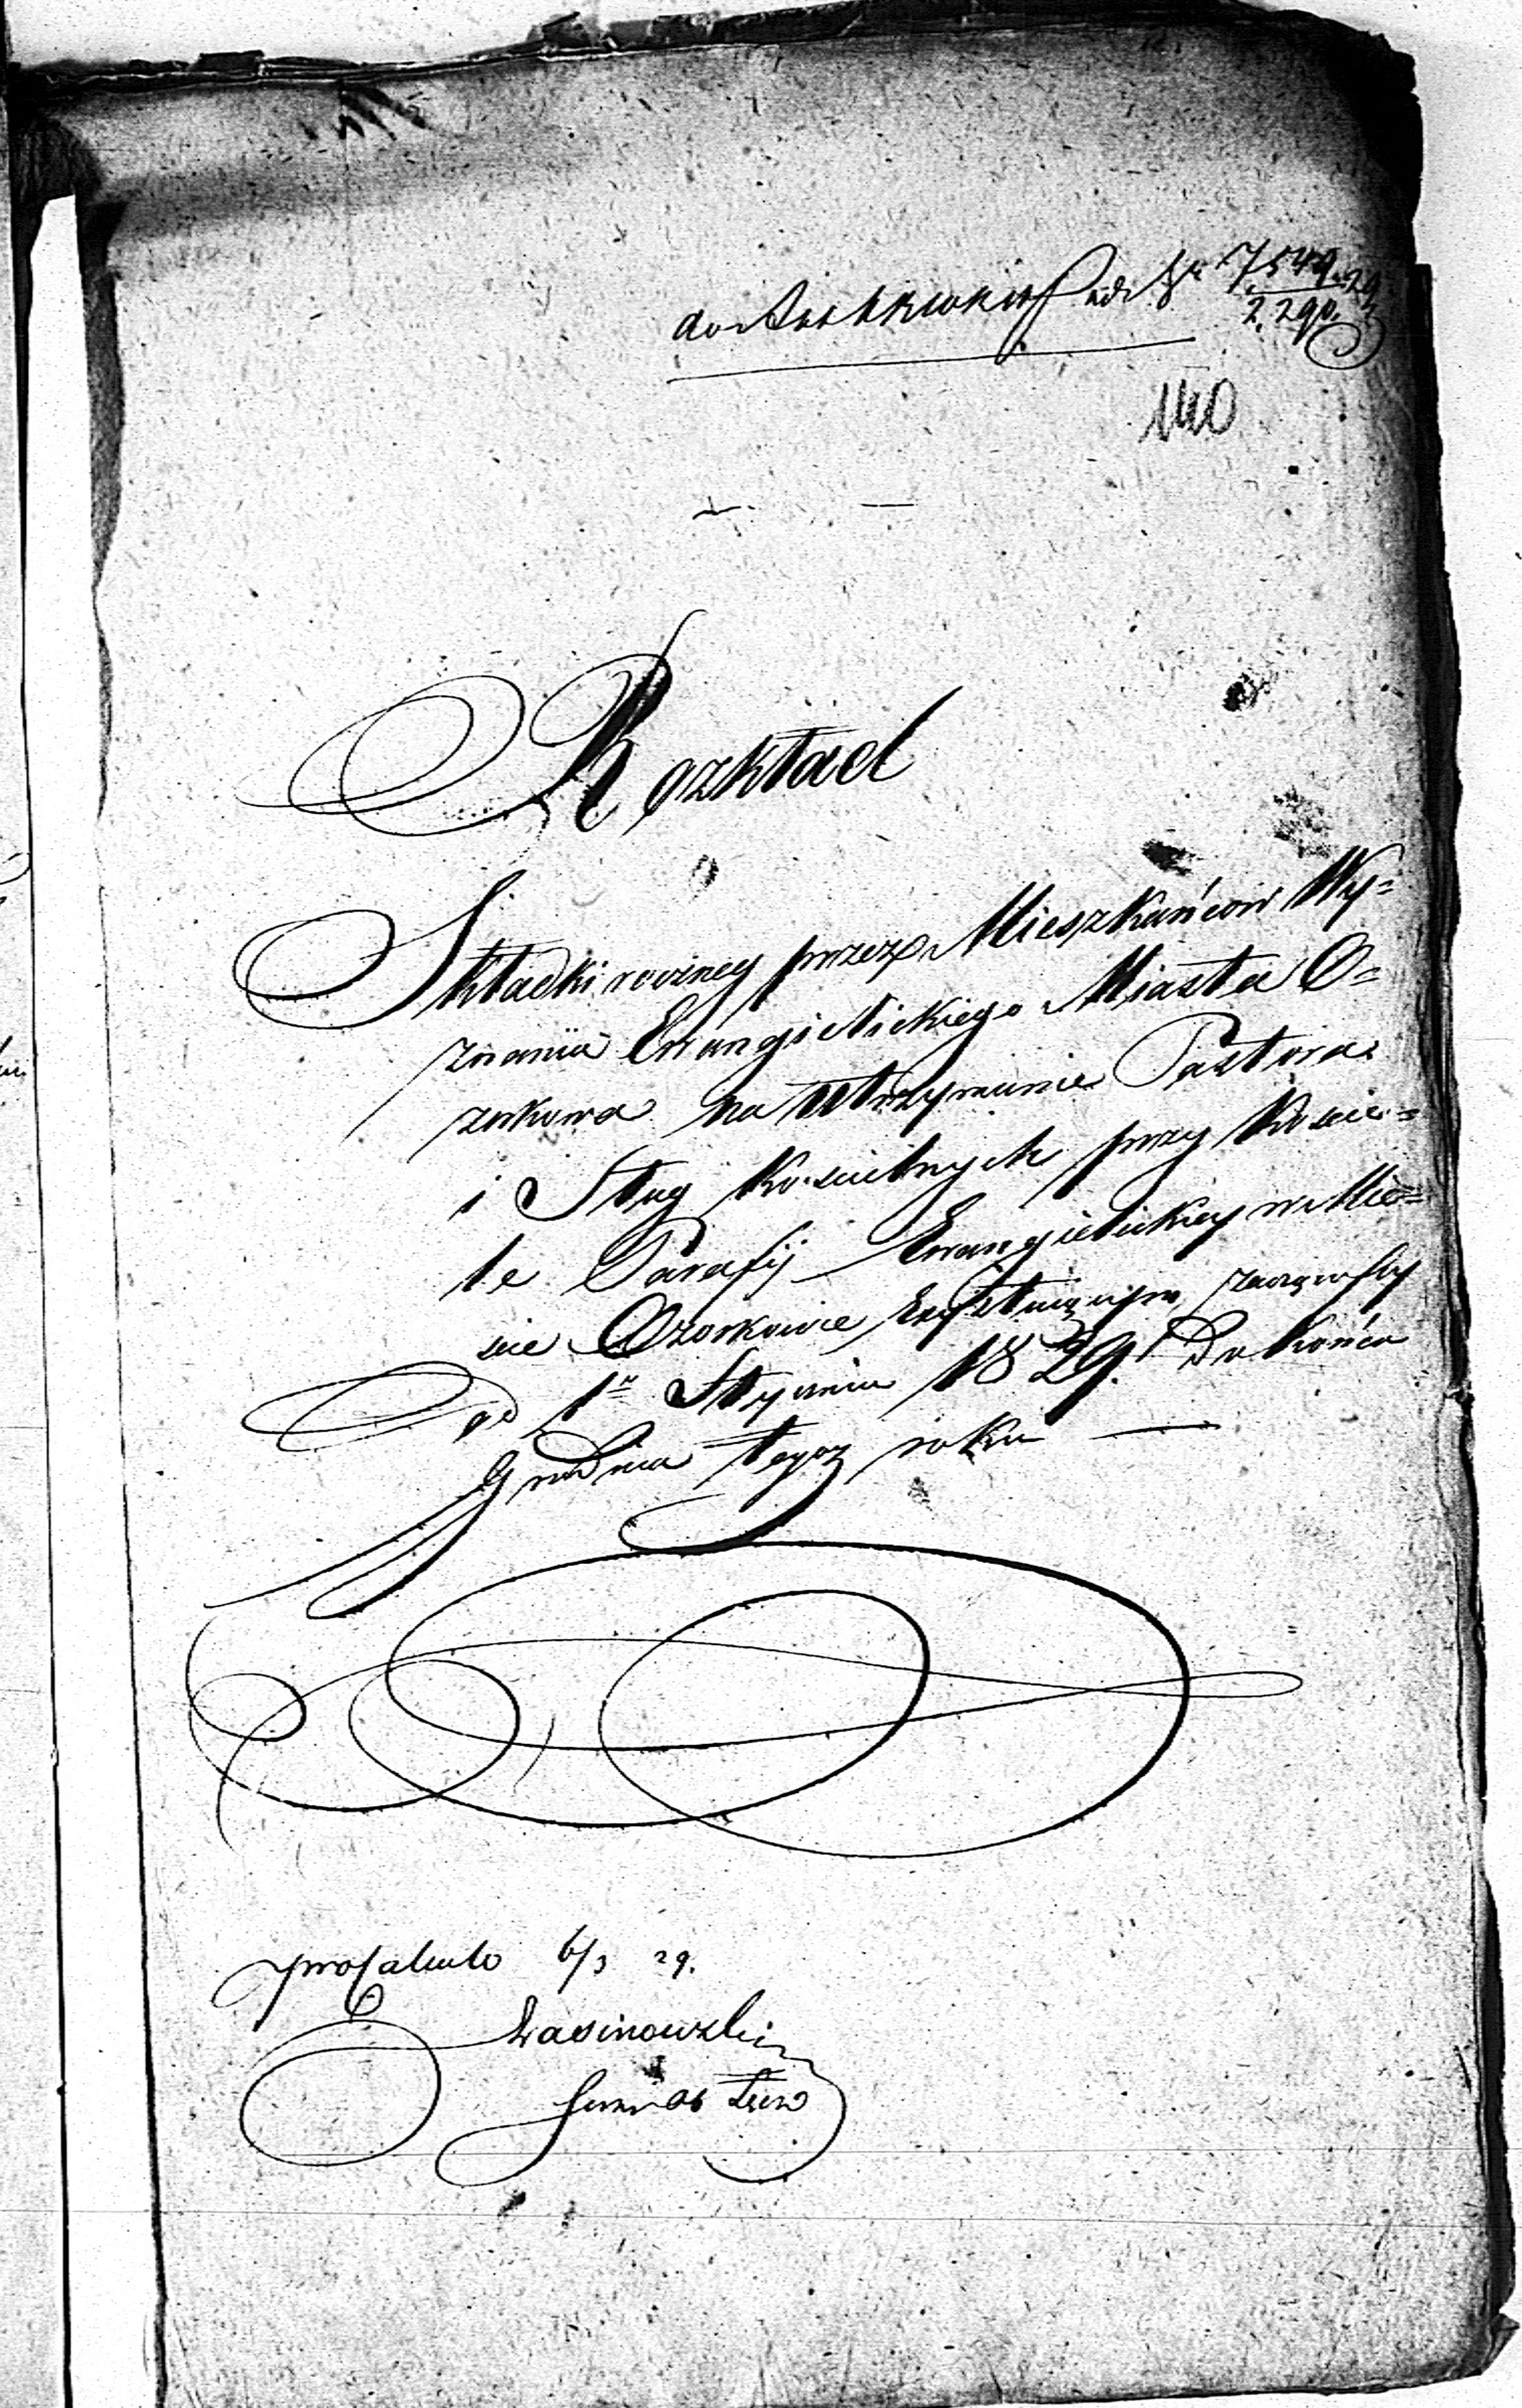 ad N° 7,549.29
2.290.
140
Rozkład
Składki roczney przez Mieszkańców Wy=
znania Ewangielickiego Miasta O=
zorkowa na utrzymanie Pastora
i Sług Kościelnych przy Koście=
le Parafij Ewangielickiey w Mie=
ście Ozorkowie exystuiącym, zacząwszy
od 1° Stycznia 1829. Do końca
Grudnia tegoż roku —
pro Calculo 6/3 29.